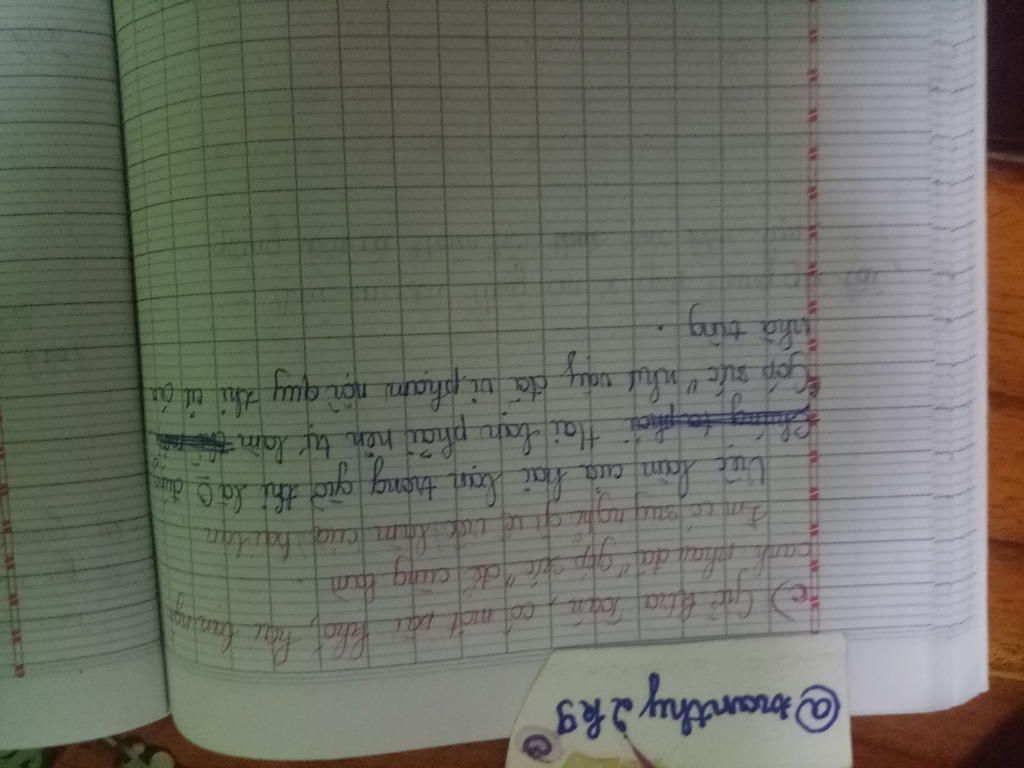 @tranthy2k9
c) Giờ ktra toán, có một bài khó, hai bạn ngồi
cạnh nhau đã "góp sức" để cùng làm
Em có suy nghĩ gì về việc làm của hai bạn
Việc làm của hai bạn trong giờ thi là 0 đúng
Hai bạn phải nên tự làm
Góp sức" như vậy đã vi phạm nội quy thi cử của
nhà trường.